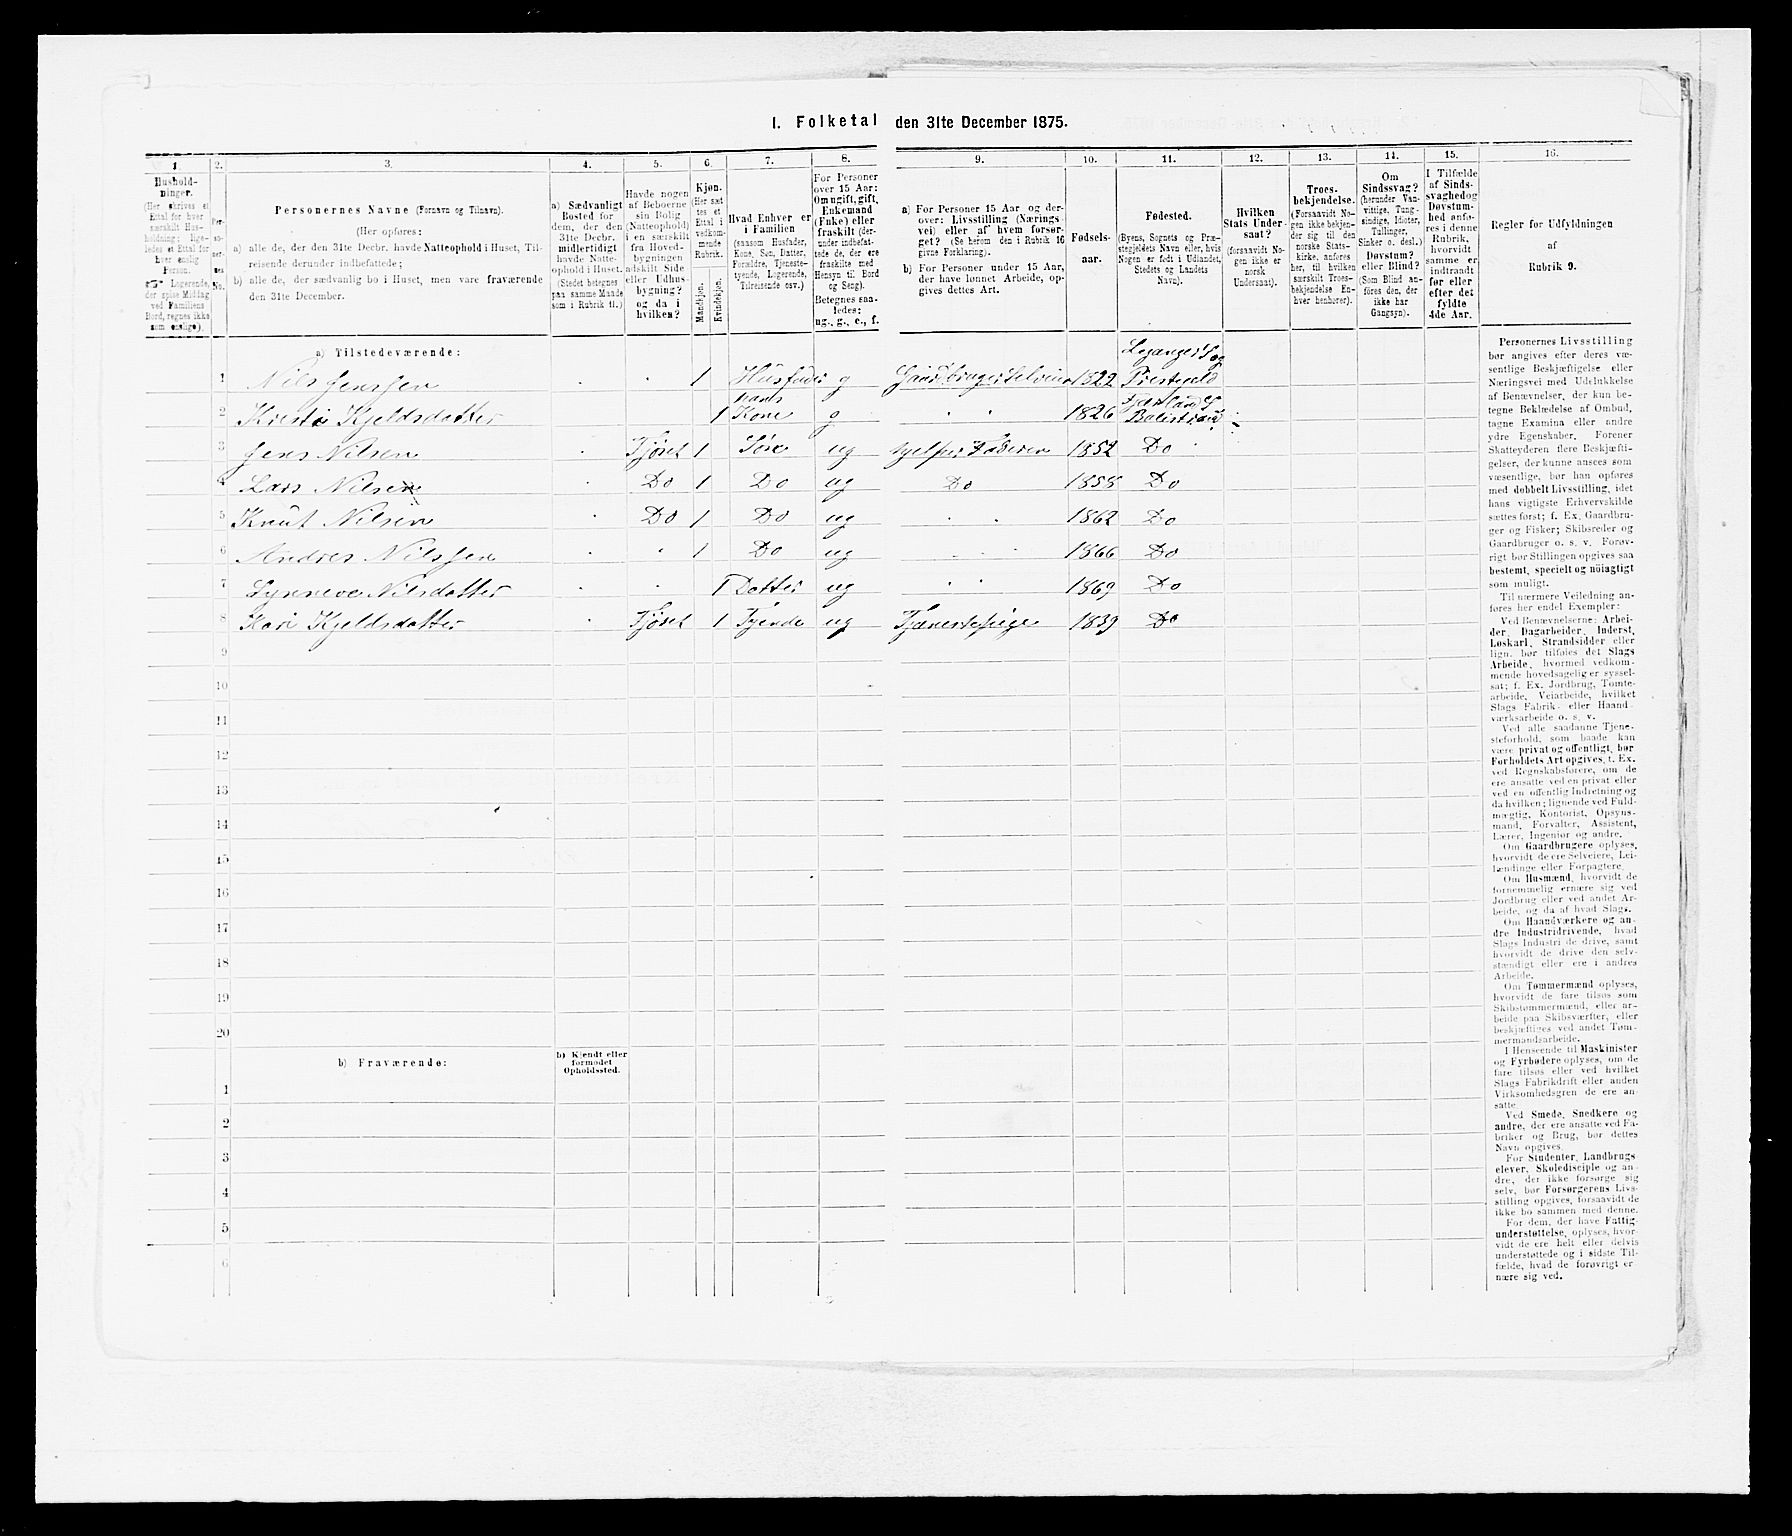 I. Folketal den 31te December 1875.
1. 2. 3. 4. 5. 6. 7. 8. 9. 10. 11. 12. 13. 14. 15. 16.
Hushold-
ninger.
(Her skrives et
Ettal for hver
særskilt Hus-
holdning; lige-
ledes et Ettal for
hver enslig
Person.
Logerende,
der spise Middag
ved Familiens
Bord, regnes ikke
som enslige).
Per-
so-
ner-
nes
No.
Personernes Navne (Fornavn og Tilnavn).
(Her opføres:
a) alle de, der den 31te Decbr. havde Natteophold i Huset, Til-
reisende derunder indbefattede;
b) alle de, der sædvanlig bo i Huset, men vare fraværende
den 31te December.
a) Sædvanligt
Bosted for
dem, der den
31te Decbr.
midlertidigt
havde Natte-
ophold i Huset.
(Stedet betegnes
paa samme Maade
som i Rubrik 11.)
Havde nogen
af Beboerne
sin Bolig
(Natteophold)
i en særskilt
fra Hoved-
bygningen
adskilt Side
eller Udhus-
bygning?
og da i
hvilken?
Kjøn.
(Her sæt-
tes et
Ettal i
vedkom-
mende
Rubrik.
Mandkjøn.
Kvindekjøn.
Hvad Enhver er
i Familien
(saasom Husfader,
Kone, Søn, Datter,
Forældre, Tjeneste-
tyende, Logerende,
Tilreisende osv.)
For Personer
over 15 Aar:
Om ugift, gift,
Enkemand
(Enke) eller
fraskilt (der-
under indbefat-
tede de, der ere
fraskilte med
Hensyn til Bord
og Seng).
Betegnes saa-
ledes:
ug., g., e., f.
a) For Personer 15 Aar og der-
over: Livsstilling (Nærings-
vei) eller af hvem forsør-
get? (Se herom den i Rubrik 16
givne Forklaring).
b) For Personer under 15 Aar,
der have lønnet Arbeide, op-
gives dettes Art.
Fødsels-
aar.
Fødested.
(Byens, Sognets og Præ-
stegjeldets Navn eller, hvis
Nogen er født i Udlandet,
Stedets og Landets
Navn).
Hvilken
Stats Under-
saat?
(forsaavidt No-
gen ikke er
norsk
Undersaat).
Troes-
bekjendelse.
(Forsaavidt No-
gen ikke bekjen-
der sig til den
norske Stats-
kirke, anføres
her, til hvilken
særskilt Troes-
bekjendelse En-
hver henhører).
Om
Sindssvag?
(herunder Van-
vittige, Tung-
sindige, Idioter,
Tullinger,
Sinker o. desl.)
Døvstum?
eller Blind?
(Som Blind an-
føres den, der
ikke har
Gangsyn).
I Tilfælde
af Sinds-
svaghed og
Døvstum-
hed anfø-
res i denne
Rubrik,
hvorvidt
samme er
indtraadt
før eller
efter det
fyldte
4de Aar.
Regler for Udfyldningen
af
Rubrik 9.
a) Tilstedeværende:
1 Nils Jenssen 1 Husfader g Gaardbruger Selveier 1822 Leganger S og Prestegeld
2 Kristi Kjeldsdatter 1 hans Kone g 1826 Fjærland S Balestrand
3 Jens Nilsen Fjøset 1 Søn ug hjelper Faderen 1852 Do
4 Lars Nilsen Do 1 Do ug Do 1858 Do
5 Knut Nilsen Do 1 Do ug 1862 Do
6 Andres Nilssen 1 Do ug 1866 Do
7 Synneve Nilsdatter 1 Datter ug 1869 Do
8 Kari Kjeldsdatter Fjøset 1 Tyende ug Tjenestepige 1839 Do
9
10
11
12
13
14
15
16
17
18
19
20
b) Fraværende:
b) Kjendt eller
formodet
Opholdssted.
1
2
3
4
5
6
Personernes Livsstilling
bør angives efter deres væ-
sentlige Beskjæftigelse eller
Næringsvei med Udelukkelse
af Benævnelser, der kun be-
tegne Beklædelse af Ombud,
tagne Examina eller andre
ydre Egenskaber. Forener
Skatteyderen flere Beskjæfti-
gelser, der kunne ansees som
væsentlige, bør han opføres
med dobbelt Livsstilling, idet
hans vigtigste Erhvervskilde
sættes først; f. Ex. Gaardbru-
ger og Fisker; Skibsreder og
Gaardbruger o. s. v. Forøv-
rigt bør Stillingen opgives saa
bestemt, specielt og nöiagtigt
som muligt.
Til nærmere Veiledning an-
føres her endel Exempler:
Ved Benævnelserne: Arbei-
der, Dagarbeider, Inderst,
Løskarl, Strandsidder eller
lign. bør tilføies det Slags
Arbeide, hvormed vedkom-
mende hovedsagelig er syssel-
sat; f. Ex. Jordbrug, Tomte-
arbeide, Veiarbeide, hvilket
Slags Fabrik- eller Haand-
værksarbeide o. s. v.
Ved alle saadanne Tjene-
steforhold, som baade kan
være privat og offentligt, bør
Forholdets Art opgives, t. Ex.
ved Regnskabsførere, om de
ere ansatte ved en privat eller
ved en offentlig Indretning og
da hvilken; lignende ved Fuld-
mægtig, Kontorist, Opsyns-
mand, Forvalter, Assistent,
Lærer, Ingeniør og andre.
Om Gaardbrugere oplyses,
hvorvidt de ere Selveiere, Lei-
lændinge eller Forpagtere.
Om Husmænd, hvorvidt de
fornemmelig ernære sig ved
Jordbrug eller ved andet Ar-
beide, og da af hvad Slags.
Om Haandværkere og an-
dre Industridrivende, hvad
Slags Industri de drive, samt
hvorvidt de drive den selv-
stændigt eller ere i andres
Arbeide.
Om Tømmermænd oplyses,
hvorvidt de fare tilsøs som
Skibstømmermænd, eller ar-
beide paa Skibsværfter, eller
beskjæftiges ved andet Tøm-
mermandsarbeide.
I Henseende til Maskinister
og Fyrbødere oplyses, om de
fare tilsøs eller ved hvilket
Slags Fabrikdrift eller anden
Virksomhedsgren de ere an-
satte.
Ved Smede, Snedkere og
andre, der ere ansatte ved Fa-
briker og Brug, bør dettes
Navn opgives.
For Studenter, Landbrugs-
elever, Skoledisciple og an-
dre, der ikke forsørge sig
selv, bør Forsørgerens Livs-
stilling opgives, forsaavidt de
ikke bo sammen med denne.
For dem, der have Fattig-
understøttelse, oplyses, hvor-
vidt de ere helt eller delvis
understøttede og i sidste Til-
fælde, hvad de forøvrigt er-
nære sig ved.